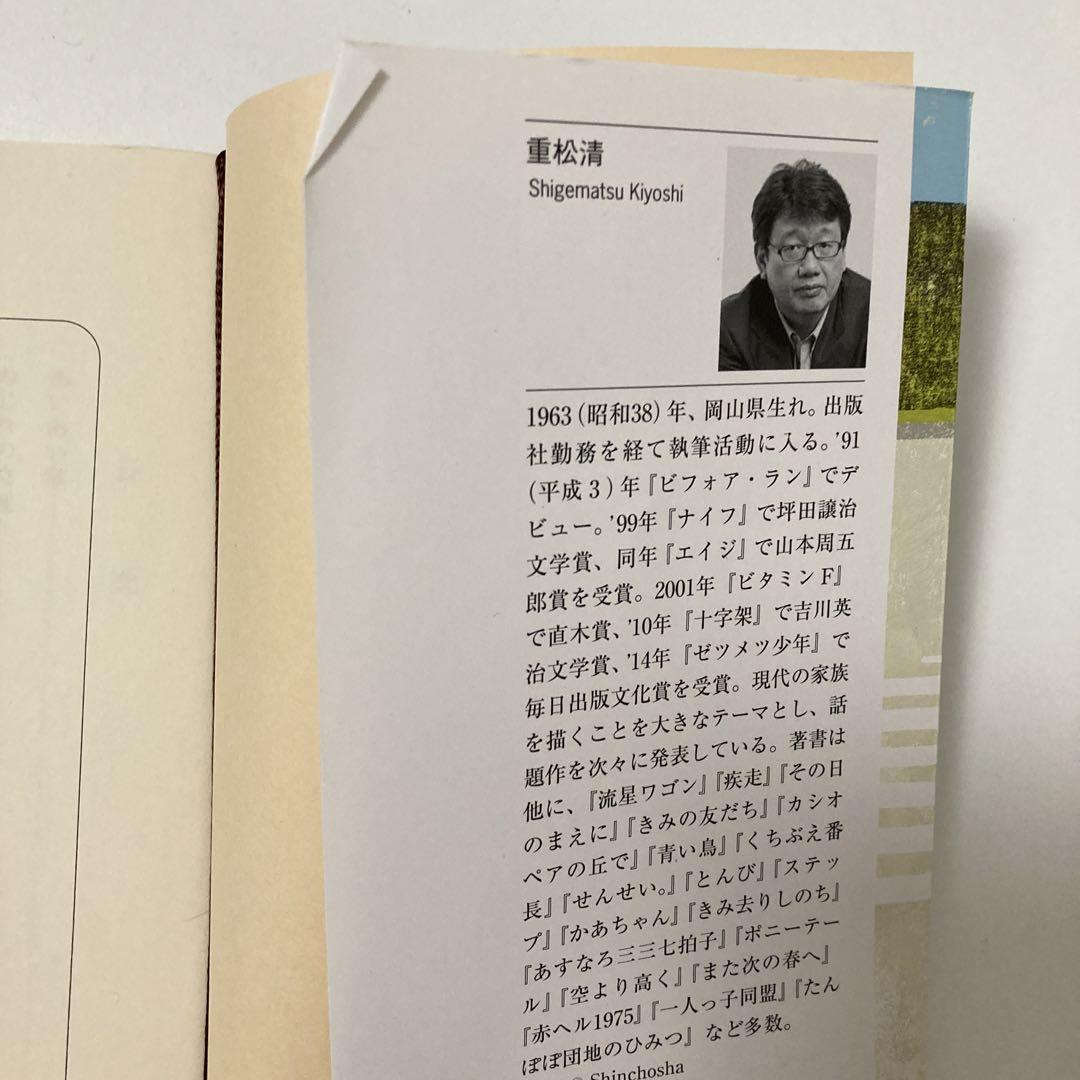 重松清
Shigematsu Kiyoshi
1963(昭和38)年、岡山県生れ。出版
社勤務を経て執筆活動に入る。'91
(平成3)年『ビフォア・ラン』でデ
ビュー。'99年『ナイフ』で坪田譲治
文学賞、同年『エイジ』で山本周五
郎賞を受賞。2001年『ビタミンF』
で直木賞、'10年『十字架』で吉川英
治文学賞、'14年『ゼツメツ少年』で
毎日出版文化賞を受賞。現代の家族
を描くことを大きなテーマとし、話
題作を次々に発表している。著書は
他に、『流星ワゴン』『疾走』『その日
のまえに』『きみの友だち』『カシオ
ペアの丘で』『青い鳥』『くちぶえ番
長』『せんせい。』『とんび』『ステッ
プ』『かあちゃん』『きみ去りしのち』
『あすなろ三三七拍子』『ポニーテー
ル』『空より高く』『また次の春へ』
『赤ヘル1975』『一人っ子同盟』『たん
ぽぽ団地のひみつ』など多数。
© Shinchosha